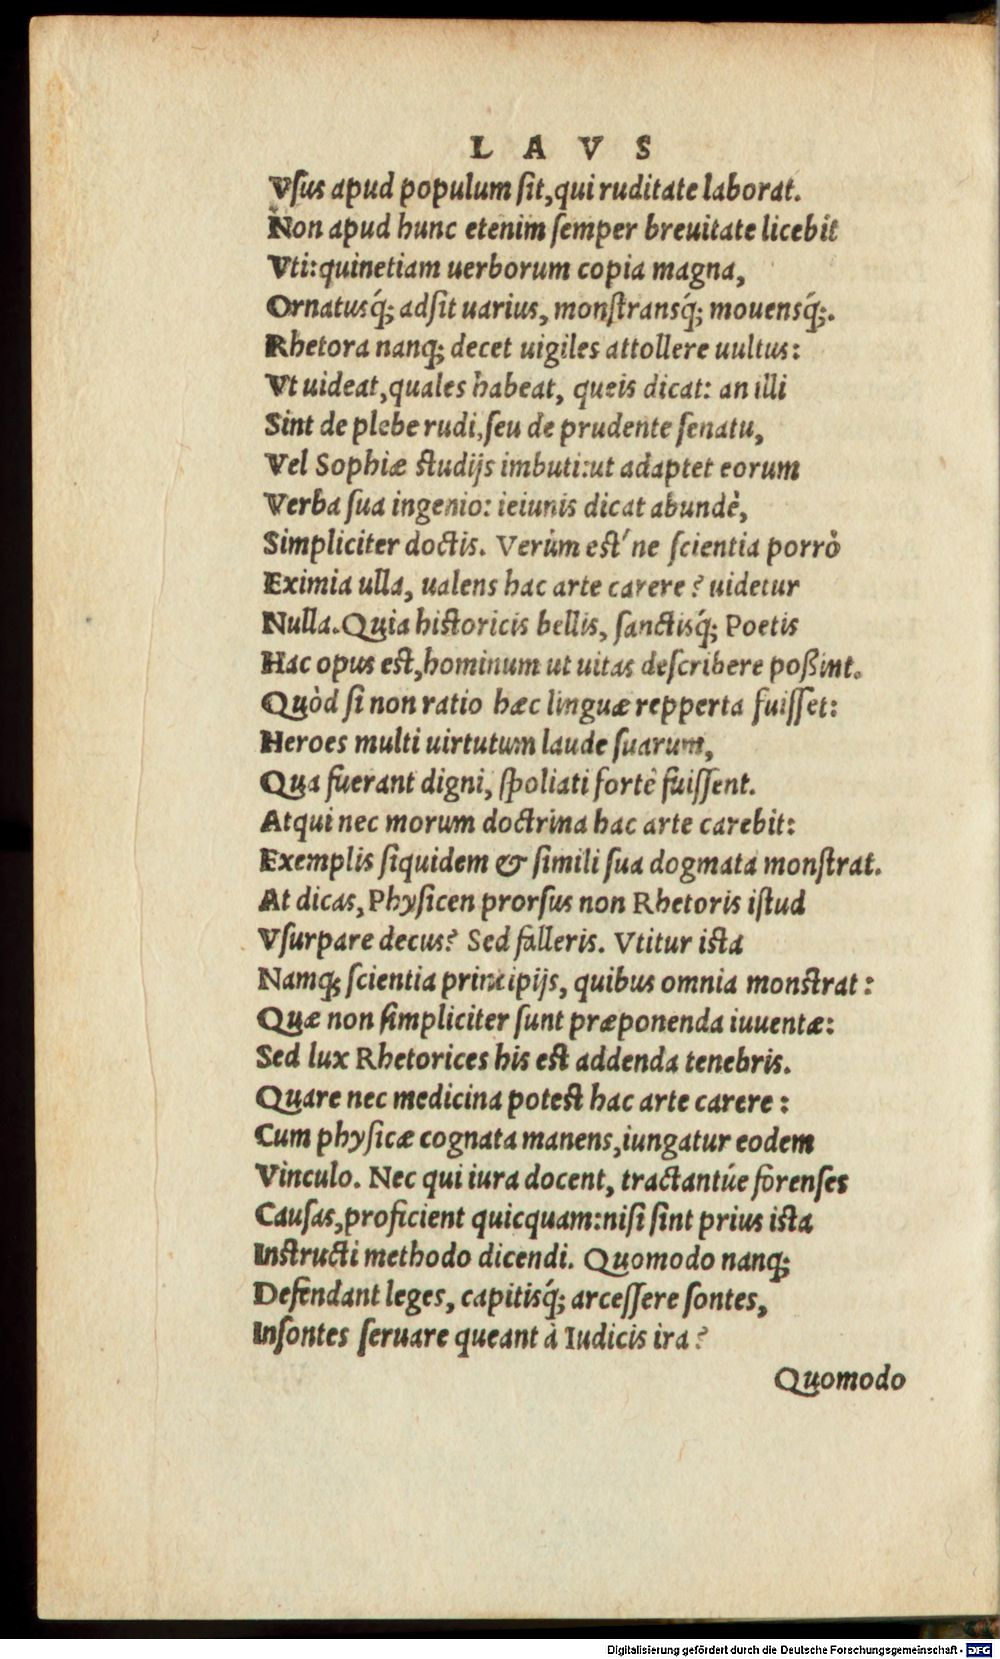 LAVS
Vſus apud populum ſit, qui ruditate laborat.
Non apud hunc etenim ſemper breuitate licebit
Vti: quinetiam uerborum copia magna,
Ornatusq́; adſit uarius, monſtransq́; mouensq́;.
Rhetora nanq; decet uigiles attollere uultus:
Vt uideat, quales habeat, queis dicat: an illi
Sint de plebe rudi, ſeu de prudente ſenatu,
Vel Sophiæ ſtudijs imbuti: ut adaptet eorum
Verba ſua ingenio: ieiunis dicat abundè,
Simpliciter doctis. Verùm eſt'ne ſcientia porrò
Eximia ulla, ualens hac arte carere? uidetur
Nulla. Quia hiſtoricis bellis, ſanctisq́; Poetis
Hac opus eſt, hominum ut uitas deſcribere poßint.
Quòd ſi non ratio hæc linguæ repperta fuiſſet:
Heroes multi uirtutum laude ſuarum,
Qua fuerant digni, ſpoliati fortè fuiſſent.
Atqui nec morum doctrina hac arte carebit:
Exemplis ſiquidem & ſimili ſua dogmata monſtrat.
At dicas, Phyſicen prorſus non Rhetoris iſtud
Vſurpare decus? Sed falleris. Vtitur iſta
Namq; ſcientia principijs, quibus omnia monſtrat:
Quæ non ſimpliciter ſunt præponenda iuuentæ:
Sed lux Rhetorices his eſt addenda tenebris.
Quare nec medicina poteſt hac arte carere:
Cum phyſicæ cognata manens, iungatur eodem
Vinculo. Nec qui iura docent, tractantúe forenſes
Cauſas, proficient quicquam: niſi ſint prius iſta
Inſtructi methodo dicendi. Quomodo nanq;
Defendant leges, capitisq́; arceſſere ſontes,
Inſontes ſeruare queant à Iudicis ira?
Quomodo
Digitalisierung gefördert durch die Deutsche Forschungsgemeinschaft - DFG